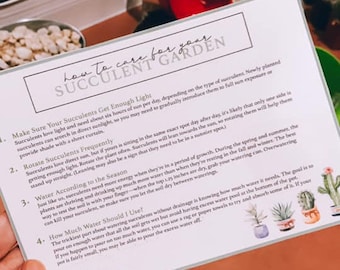 how to care for your
SUCCULENT GARDEN
1. Make Sure Your Succulents Get Enough Light
Succulents love light and need about six hours of sun per day, depending on the type of succulent. Newly planted
succulents can scorch in direct sunlight, so you may need to gradually introduce them to full sun exposure or
provide shade with a sheer curtain.
2. Rotate Succulents Frequently
Succulents love direct sun, but if yours is sitting in the same exact spot day after day, it's likely that only one side is
getting enough light. Rotate the plant often. Succulents will lean towards the sun, so rotating them will help them
stand up straight. (Leaning may also be a sign that they need to be in a sunnier spot.)
3. Water According to the Season
Just like us, succulents need more energy when they're in a period of growth. During the spring and summer, the
plants are thriving and drinking up much more water than when they're resting in the fall and winter. The best
way to test the soil is with your finger when the top are dry, grab your watering can. Overwatering
can kill your succulent, so make sure you let the soil dry between waterings.
4. How Much Water Should I Use?
The trickiest part about watering succulents without drainage is knowing how much water it needs. The goal is to
pour on enough water that all the soil gets wet but avoid having excess water pool in the bottom of the pot.
If you happen to pour on too much water, you can use a rag or paper towel to try and absorb some of it. If your
pot is fairly small, you may be able to pour the excess water off.